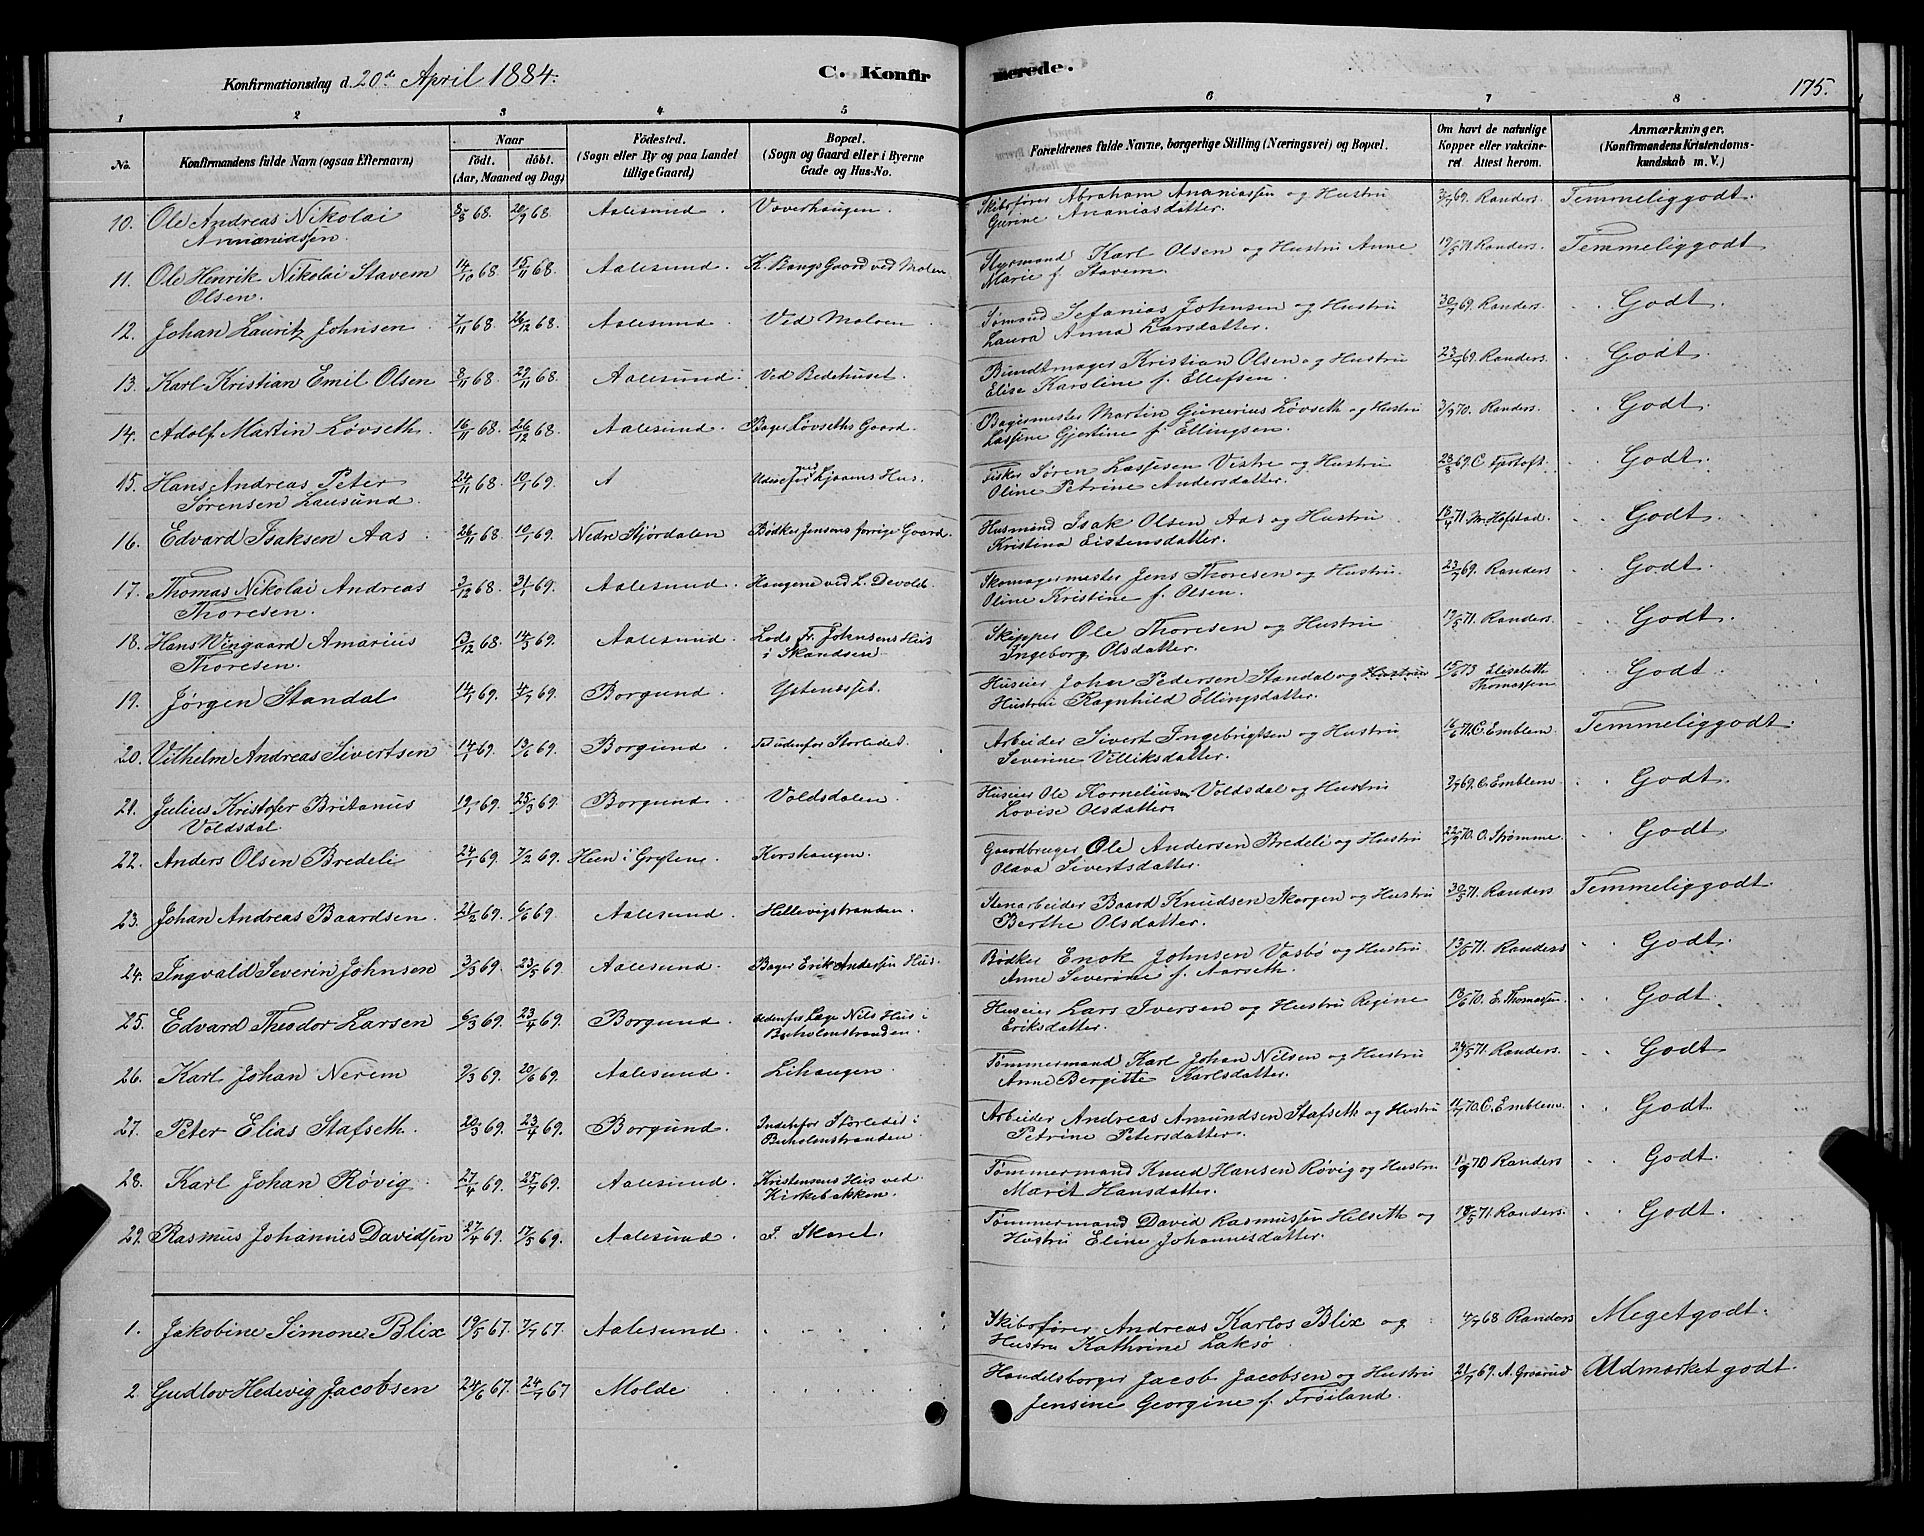 Konfirmationsdag d. 20de April 1884.
C. Konfirmerede.
175.
1 2 3 4 5 6 7 8
No. Konfirmandens fulde Navn (ogsaa Efternavn) Naar født. døbt. (Aar, Maaned og Dag) Födested. (Sogn eller By og paa Landet tillige Gaard) Bopæl. (Sogn og Gaard eller i Byerne Gade og Hus-No. Forældrenes fulde Navne, borgerlige Stilling (Næringsvei) og Bopæl. Om havt de naturlige Kopper eller vakcineret. Attest herom. Anmærkninger. (Konfirmandens Kristendomskundskab m. V.)
10. Ole Andreas Nikolai 68. 20/9 68. Aalesund. Voverhaugen. Skibsfører Abraham Ananiassen og Hustru 69. Randers. Temmelig godt.
Annaniassen. Gurine Ananiasdatter.
11. Ole Henrik Nikolai Stavem 14/10 68. 15/11 68. Aalesund. K. Bangs Gaard ved Molen Styrmand Karl Olsen og Hustru Anne 19/5 71. Randers. Temmelig godt
Olsen. Marie f. Stavem.
12. Johan Lauritz Johnsen 7/11 68. 26/12 68. Aalesund Ved Moloen Sømand Sefanias Johnsen og Hustru 30/7 69. Randers. Godt.
Laura Anna Larsdatter.
13. Karl Kristian Emil Olsen 8/11 68. 29/11 68. Aalesund. Ved Bedehuset. Bundtmager Kristian Olsen og Hustru 23/7 69. Randers. Godt.
Elise Karoline f. Ellefsen.
14. Adolf Martin Løvseth. 16/11 68. 26/12 68. Aalesund Bager Løvseths Gaard. Bagermester Martin Gunerius Løvseth og Hustru 3/9 70. Randers. Godt.
Lassine Gjertine f. Ellingsen.
15. Hans Andreas Peter 24/11 68. 10/1 69. A Hus. Fisker Søren Lassesen Vestre og Hustru 28/8 69. C. Fjørtoft. Godt.
Sørensen Lausund. Oline Petrine Andersdatter.
16. Edvard Isaksen Aas 26/11 68. 10/1 69. Nedre Stjørdalen Bødker Jensens forrige Gaard. Husmand Isak Olsen Aas og Hustru 13/4 71. M. Hofstad. Godt.
Kristina Eistensdatter.
17. Thomas Nikolai Andreas 3/12 68. 31/1 69. Aalesund. Haugene ved L. Devold. Skomagermester Jens Thoresen og Hustru 23/7 69. Randers Godt.
Thoresen. Oline Kristine f. Olsen.
18. Hans Wingaard Amarius 13/12 68. 14/3 69. Aalesund. Lods Fr. Johnsens Hus Skipper Ole Thoresen og Hustru 19/5 71. Randers. Godt.
Thoresen. i Skandsen. Ingeborg Olsdatter.
19. Jørgen Standal 14/1 69. 4/7 69. Borgund. Ystenesset. Huseier John Pedersen Standal og Hustru 15/6 73 Elisabeth Godt.
Hustru Ragnhild Ellingsdatter. Thomassen
20. Vilhelm Andreas Sivertsen 14/1 69. 13/6 69. Borgund. udenfor Storledet. Arbeider Sivert Ingebrigtsen og Hustru 16/6 71. C. Emblem. Temmelig godt.
Severine Villiksdatter.
21. Julius Kristofer Britanus 19/1 69. 25/3 69. Borgund. Voldsdalen. Huseier Ole Kornelius Voldsdal og Hustru 69. C. Emblem Godt.
Voldsdal. Lovise Olsdatter.
22. Anders Olsen Bredeli 24/1 69. 7/2 69. Heen i Grytene. Korshaugen. Gaardbruger Ole Andersen Bredeli og Hustru 22/9 70. O. Strømme. Godt.
Olava Sivertsdatter.
23. Johan Andreas Baardsen. 21/2 69. 6/6 69. Aalesund. Hellevigstranden. Stenarbeider Baard Knudsen Skorgen og Hustru 30/5 71. Randers Temmelig godt.
Berthe Olsdatter.
24. Ingvald Severin Johnsen 3/3 69. 23/5 69. Aalesund. Bager Erik Andersen Hus. Bødker Enok Johnsen Vasbø og Hustru 13/5 71. Randers Godt.
Anne Severine f. Aarseth.
25. Edvard Theodor Larsen 6/3 69. 23/4 69. Borgund. udenfor Lage Nils Hus i Huseier Lars Iversen og Hustru Regine 13/6 70. E. Thomassen. Godt.
Buholmstranden. Eriksdatter.
26. Karl Johan Nerem 9/3 69. 20/6 69. Aalesund. Lihaugen. Tømmermand Karl Johan Nilsen og Hustru 24/5 71. Randers. Godt
Anne Bergitte Karlsdatter.
27. Peter Elias Stafseth. 20/3 69. 23/4 69. Borgund. Indenfor Storledet i Arbeider Andreas Amundsen Stafseth og Hustru 11/7 70. C. Emblem. Godt.
Buholmstranden. Petrine Petersdatter.
28. Karl Johan Røvig 27/4 69. 25/7 69. Aalesund. Kristensens Hus ved Tømmermand Knud Hansen Røvig og Hustru 70 Randers Godt.
Kirkebakken. Marit Hansdatter.
29. Rasmus Johannes Davidsen 27/4 69. 17/5 69. Aalesund. F. Skaret. Tømmermand David Rasmussen Helseth og 71. Randers. Godt.
Hustru Eline Johannesdatter.
1. Jakobine Simone Blix 19/5 67. 7/7 67. Aalesund. Skibsfører Andreas Karlos Blix og 4/7 68 Randers Meget godt.
Hustru Kathrine Laksø.
2. Gudlov Hedevig Jacobsen 24/6 67. 24/7 67 Molde Handelsborger Jacob Jacobsen og Hustru 21/7 69. A. Grøsrud Udmærket godt.
Jensine Georgine f. Frøiland.